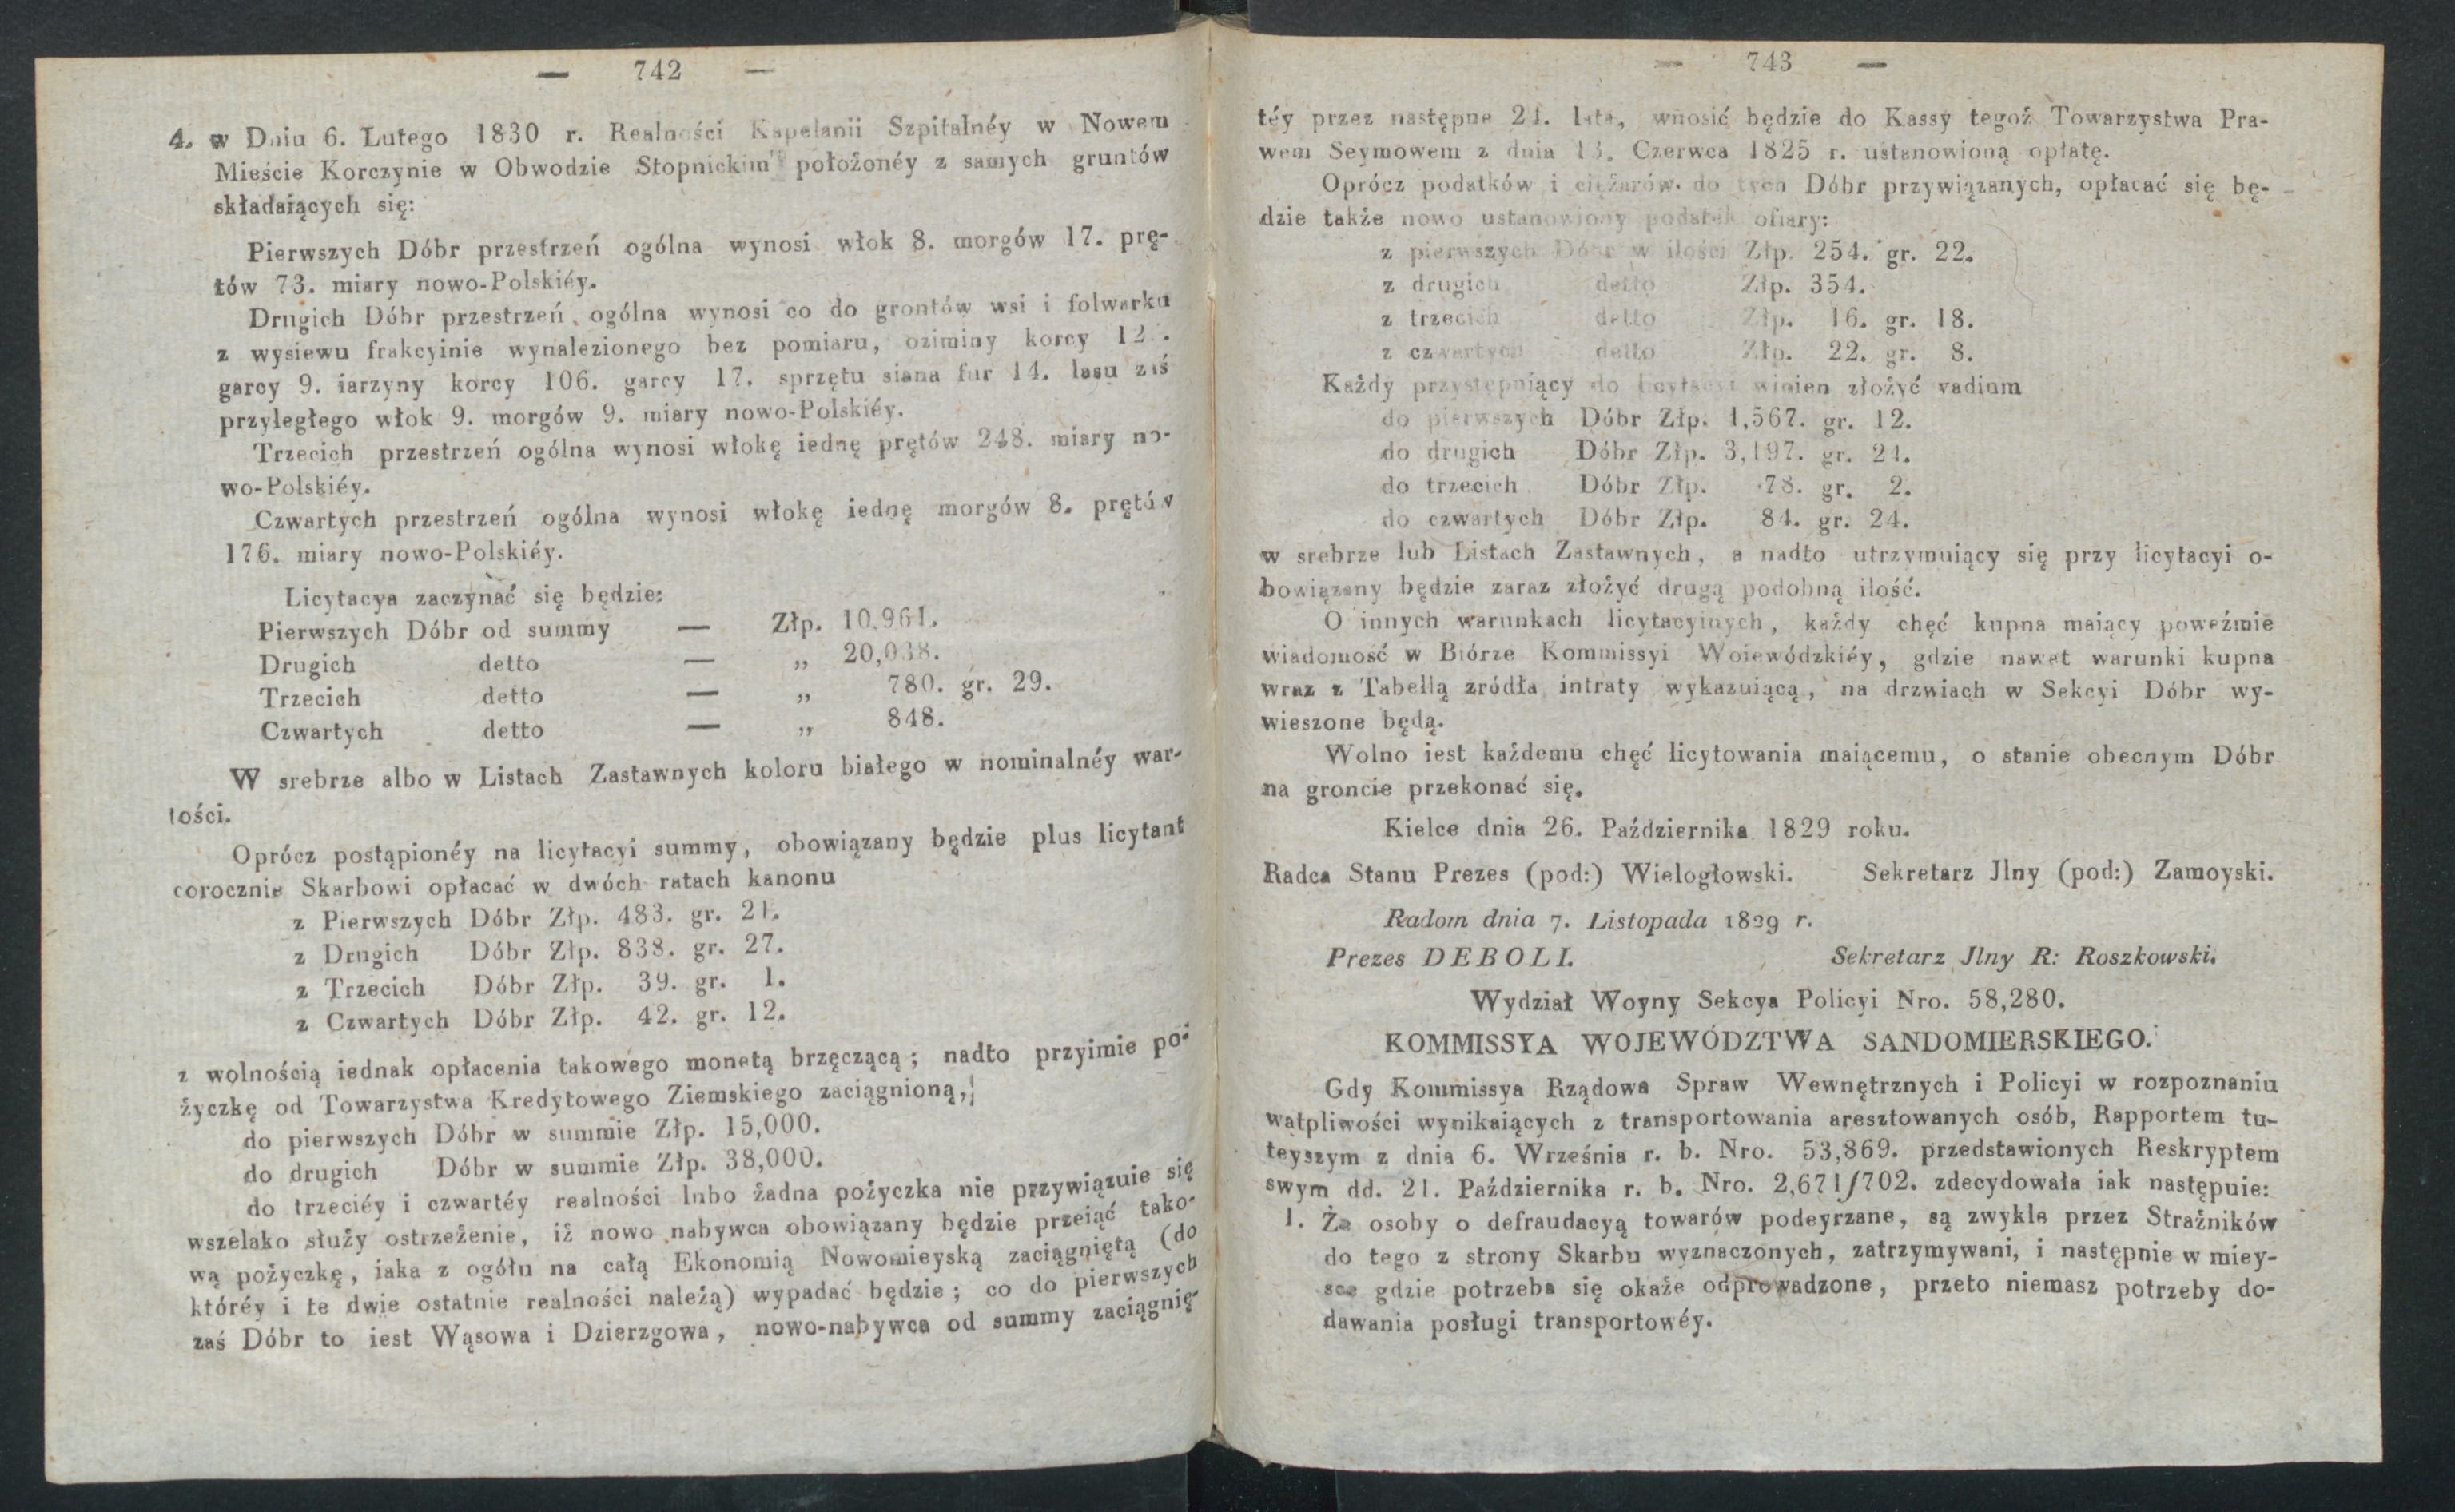 — 742 —
4. w Dniu 6. Lutego 1830 r. Realności Kapelanii Szpitalnéy w Nowem
Mieście Korczynie w Obwodzie Stopnickim położonéy z samych gruntów
składaiących się:
Pierwszych Dóbr przestrzeń ogólna wynosi włok 8. morgów 17. prę-
tów 73. miary nowo-Polskiéy.
Drugich Dóbr przestrzeń ogólna wynosi co do grontów wsi i folwarku
z wysiewu frakcyinie wynalezionego bez pomiaru, oziminy korcy
garcy 9. iarzyny korcy 106. garcy 17. sprzętu siana fur 14. lasu zaś
przyległego włok 9. morgów 9. miary nowo-Polskiéy.
Trzecich przestrzeń ogólna wynosi włokę iednę prętów 248. miary no-
wo-Polskiéy.
Czwartych przestrzeń ogólna wynosi włokę iednę morgów 8. prętów
176. miary nowo-Polskiéy.
Licytacya zaczynać się będzie:
Pierwszych Dóbr od summy — Złp. 10,961.
Drugich detto — „ 20,038.
Trzecich detto — „ 780. gr. 29.
Czwartych detto — „ 848.
W srebrze albo w Listach Zastawnych koloru białego w nominalnéy war-
tości.
Oprócz postąpionéy na licytacyi summy, obowiązany będzie plus licytant
corocznie Skarbowi opłacać w dwóch ratach kanonu
z Pierwszych Dóbr Złp. 483. gr. 21.
z Drugich Dóbr Złp. 838. gr. 27.
z Trzecich Dóbr Złp. 39. gr. 1.
z Czwartych Dóbr Złp. 42. gr. 12.
z wolnością iednak opłacenia takowego monetą brzęczącą; nadto przyimie po-
życzkę od Towarzystwa Kredytowego Ziemskiego zaciągnioną,
do pierwszych Dóbr w summie Złp. 15,000.
do drugich Dóbr w summie Złp. 38,000.
do trzeciéy i czwartéy realności lubo żadna pożyczka nie przywiązuie się
wszelako służy ostrzeżenie, iż nowo nabywca obowiązany będzie przeiąć tako-
wą pożyczkę, iaka z ogółu na całą Ekonomią Nowomieyską zaciągniętą (do
któréy i te dwie ostatnie realności należą) wypadać będzie; co do pierwszych
zaś Dóbr to iest Wąsowa i Dzierzgowa, nowo-nabywca od summy zaciągnię-
— 743 —
téy przez następne 21. lata, wnosić będzie do Kassy tegoż Towarzystwa Pra-
wem Seymowem z dnia 13. Czerwca 1825 r. ustanowioną opłatę.
Oprócz podatków i ciężarów do tych Dóbr przywiązanych, opłacać się bę-
dzie także nowo ustanowiony podatek ofiary:
z pierwszych Dóbr w ilości Złp. 254. gr. 22.
z drugich detto Złp. 354.
z trzecich detto Złp. 16. gr. 18.
z czwartych detto Złp. 22. gr. 8.
Każdy przystępuiący do licytacyi winien złożyć vadium
do pierwszych Dóbr Złp. 1,567. gr. 12.
do drugich Dóbr Złp. 3,197. gr. 21.
do trzecich Dóbr Złp. 78. gr. 2.
do czwartych Dóbr Złp. 84. gr. 24.
w srebrze lub Listach Zastawnych, a nadto utrzymuiący się przy licytacyi o-
bowiązany będzie zaraz złożyć drugą podobną ilość.
O innych warunkach licytacyinych, każdy chęć kupna maiący poweźmie
wiadomość w Biórze Kommissyi Woiewódzkiéy, gdzie nawet warunki kupna
wraz z Tabellą zródła intraty wykazuiącą, na drzwiach w Sekcyi Dóbr wy-
wieszone będą.
Wolno iest każdemu chęć licytowania maiącemu, o stanie obecnym Dóbr
na groncie przekonać się.
Kielce dnia 26. Października 1829 roku.
Radca Stanu Prezes (pod:) Wielogłowski. Sekretarz Jlny (pod:) Zamoyski.
Radom dnia 7. Listopada 1829 r.
Prezes DEBOLI. Sekretarz Jlny R: Roszkowski.
Wydział Woyny Sekcya Policyi Nro. 58,280.
KOMMISSYA WOJEWÓDZTWA SANDOMIERSKIEGO.
Gdy Kommissya Rządowa Spraw Wewnętrznych i Policyi w rozpoznaniu
wątpliwości wynikaiących z transportowania aresztowanych osób, Rapportem tu-
teyszym z dnia 6. Września r. b. Nro. 53,869. przedstawionych Reskryptem
swym dd. 21. Października r. b. Nro. 2,671/702. zdecydowała iak następuie:
1. Że osoby o defraudacyą towarów podeyrzane, są zwykle przez Strażników
do tego z strony Skarbu wyznaczonych, zatrzymywani, i następnie w miey-
sce gdzie potrzeba się okaże odprowadzone, przeto niemasz potrzeby do-
dawania posługi transportowéy.